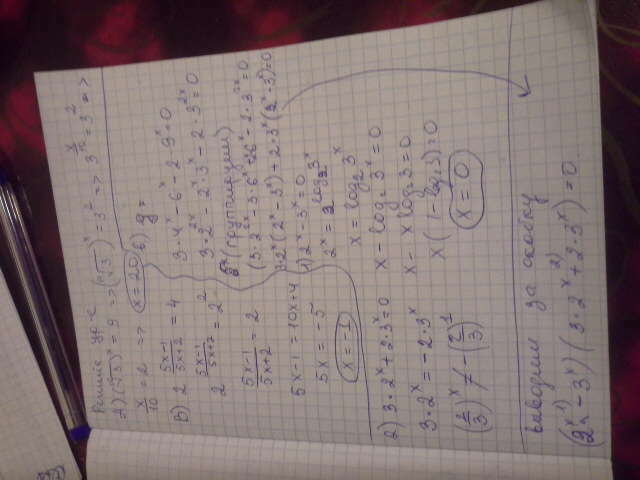 Решить ур-е
а) (¹⁰√3)ˣ = 9 => (¹⁰√3)ˣ = 3² => 3^(x/10) = 3² =>
x/10 = 2 => x = 20
в) 2^((5x-1)/(5x+2)) = 4
2^((5x-1)/(5x+2)) = 2²
(5x-1)/(5x+2) = 2
5x-1 = 10x+4
5x = -5
x = -1
3·4ˣ - 6ˣ - 2·9ˣ = 0
3·2²ˣ - 2ˣ·3ˣ - 2·3²ˣ = 0
(группируем)
3·2ˣ(2ˣ-3ˣ) + 2·3ˣ(2ˣ-3ˣ) = 0
1) 2ˣ - 3ˣ = 0
2ˣ = 2^(log₂3ˣ)
x = log₂3ˣ
x - log₂3ˣ = 0
x - x log₂3 = 0
x(1 - log₂3) = 0
x = 0
2) 3·2ˣ + 2·3ˣ = 0
3·2ˣ = -2·3ˣ
(2/3)ˣ ≠ -(2/3)¹
выводим за скобку
(2ˣ - 3ˣ)(3·2ˣ + 2·3ˣ) = 0